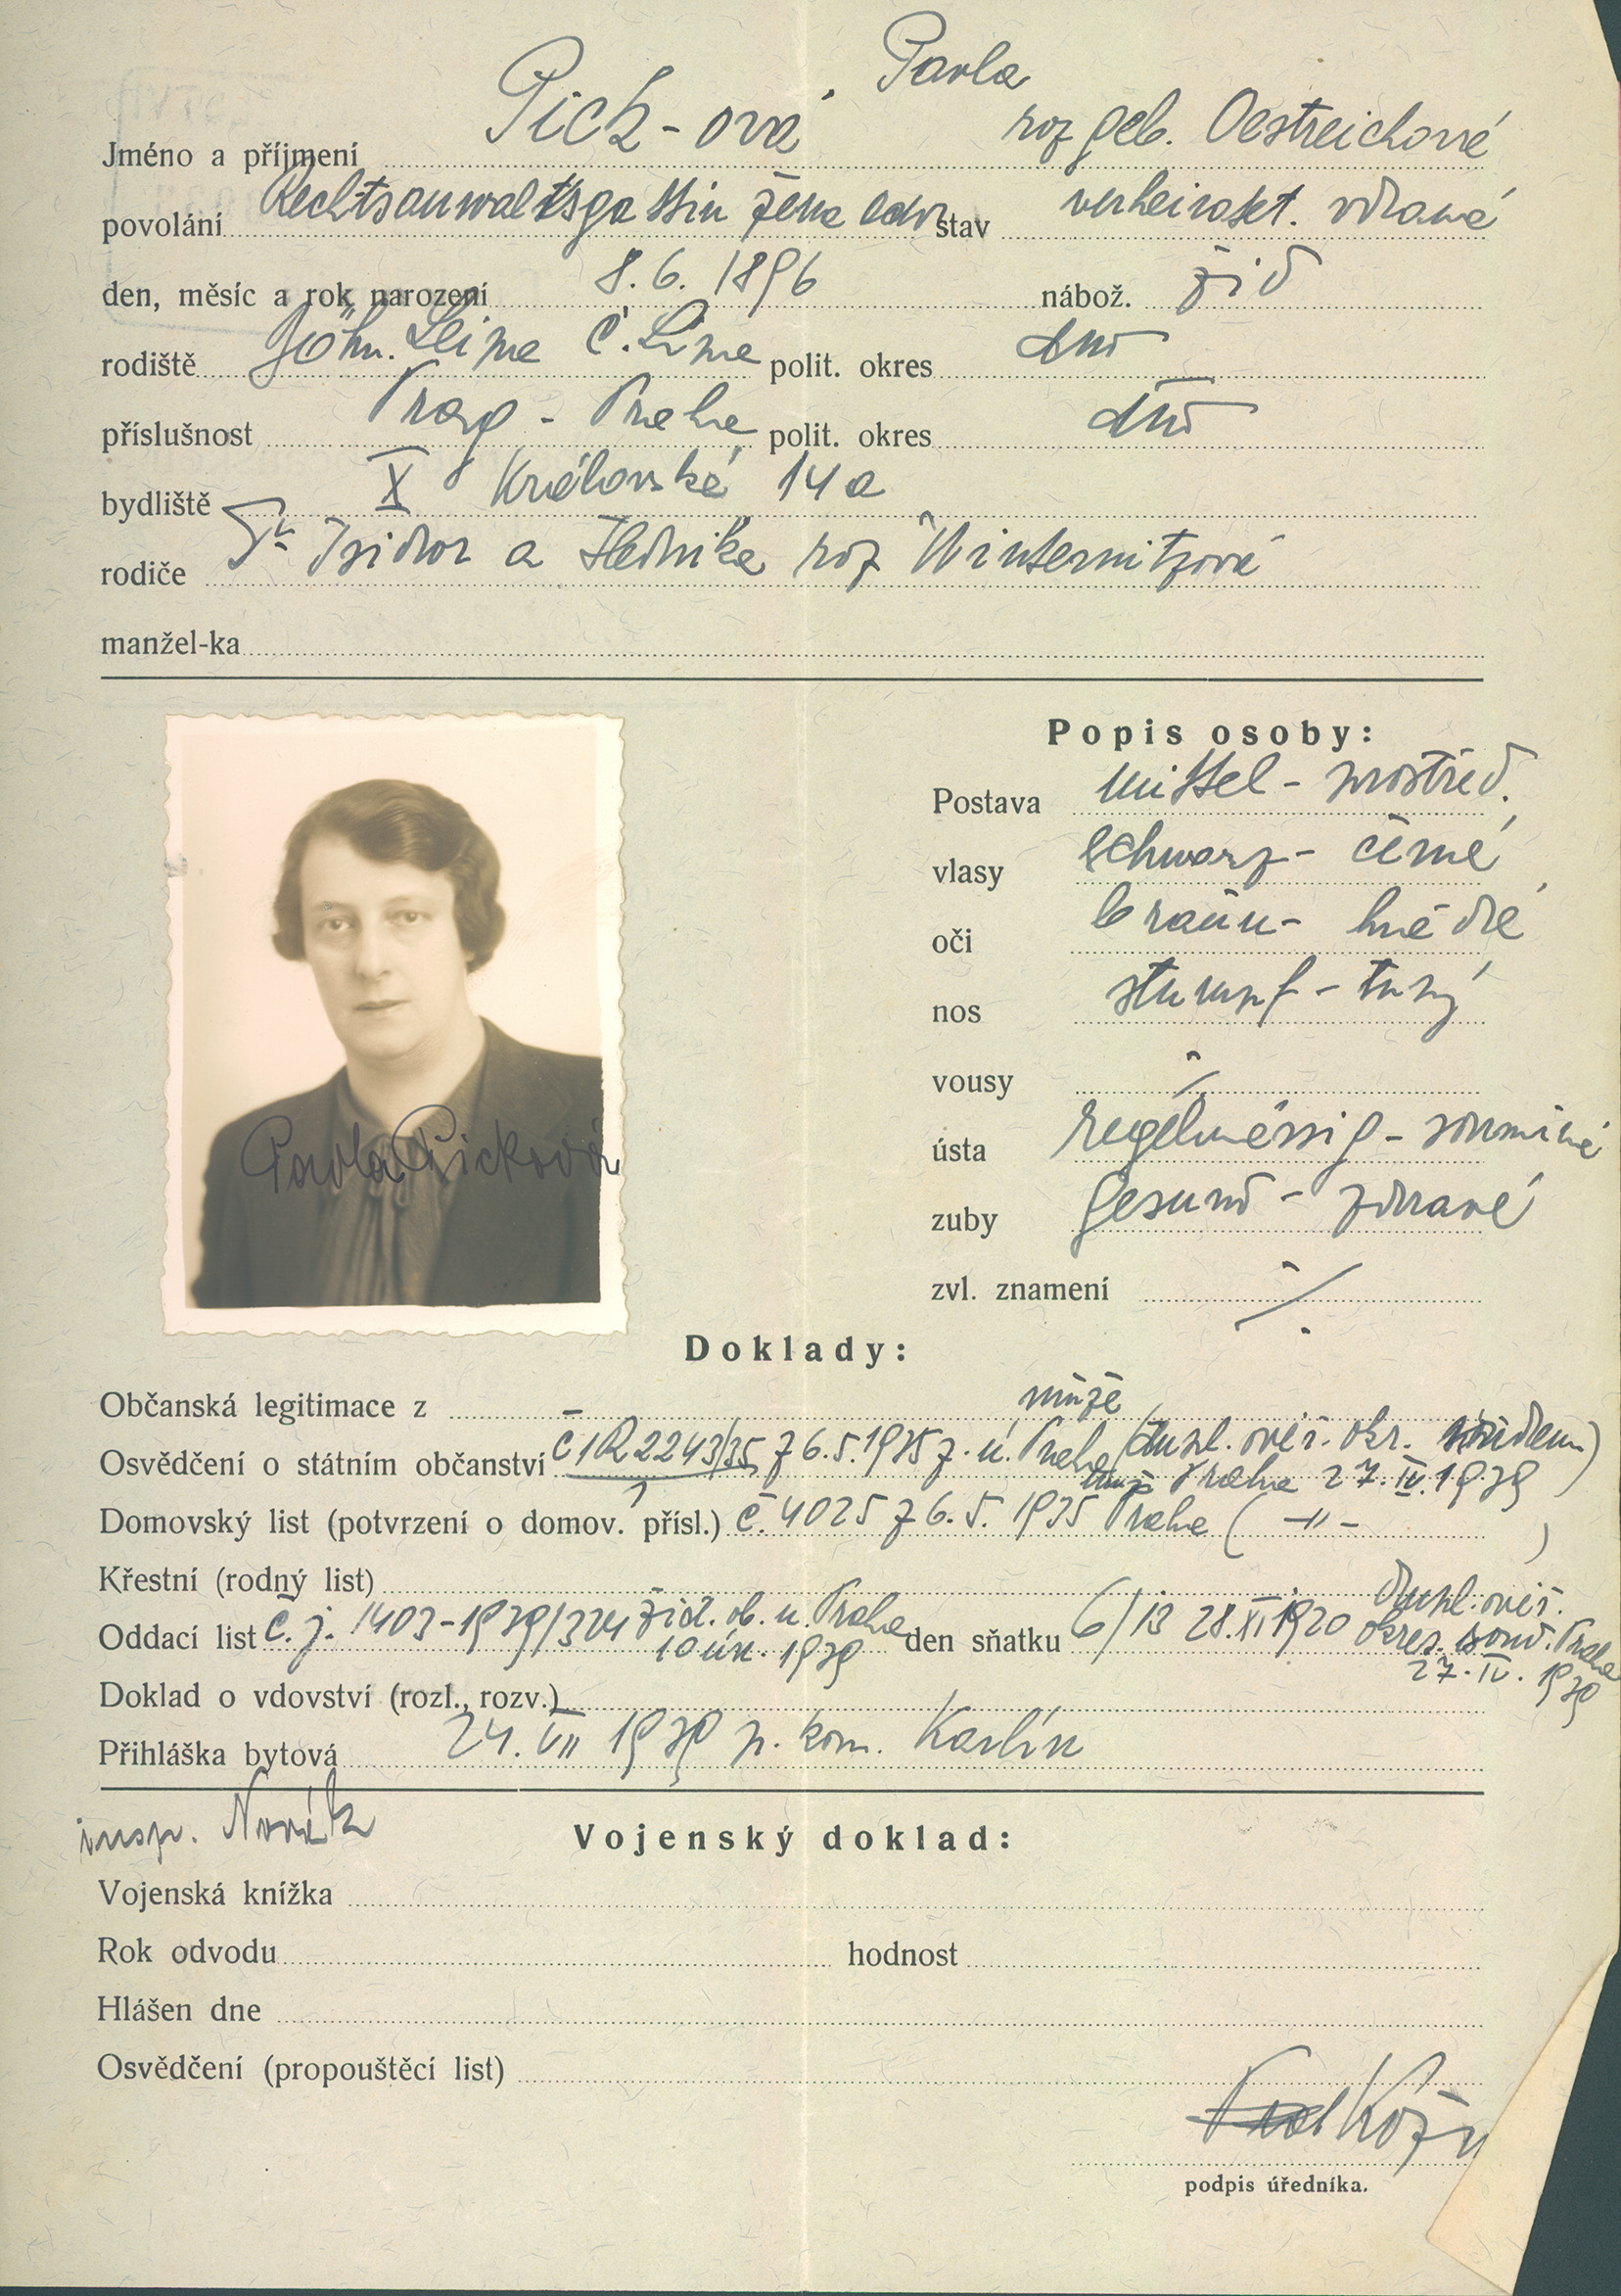 Pavla
Jméno a příjmení Pick-ová roz geb. Oestreichová
povolání Rechtsanwaltsgattin žena adv. stav verheiratet. vdaná
den, měsíc a rok narození 8. 6. 1896 nábož. žid
rodiště Böhm. Leipa Č. Lípa polit. okres dtto
příslušnost Prag - Praha polit. okres dtto
bydliště X Královská 14a
rodiče Dr Isidor a Hedvika roz Winternitzová
manžel-ka
Popis osoby:
Postava mittel - prostřed.
vlasy schwarz - černé
oči braun - hnědé
nos stumpf - tupý
vousy
ústa regelmässig - souměrné
zuby gesund - zdravé
zvl. znamení
Pavla Picková
Doklady:
Občanská legitimace z
muže
Osvědčení o státním občanství č 1R 2243/35 z 6.5.1935 z. ú. Praha (dupl. ověř. okr. soudem)
Praha 27. IV. 1939
Domovský list (potvrzení o domov. přísl.) č. 4025 z 6. 5. 1935 Praha ( -"- )
Křestní (rodný list)
Oddací list č. j. 1403-1939/324 žid. ob. n. Praha den sňatku 6/13 28. XI 1920 dupl. ověř.
10 ún. 1939 okres. soud. Praha
27. IV. 1939
Doklad o vdovství (rozl., rozv.)
Přihláška bytová 24. VII 1939 p. kom. Karlín
insp. Novák
Vojenský doklad:
Vojenská knížka
Rok odvodu hodnost
Hlášen dne
Osvědčení (propouštěcí list)
podpis úředníka.